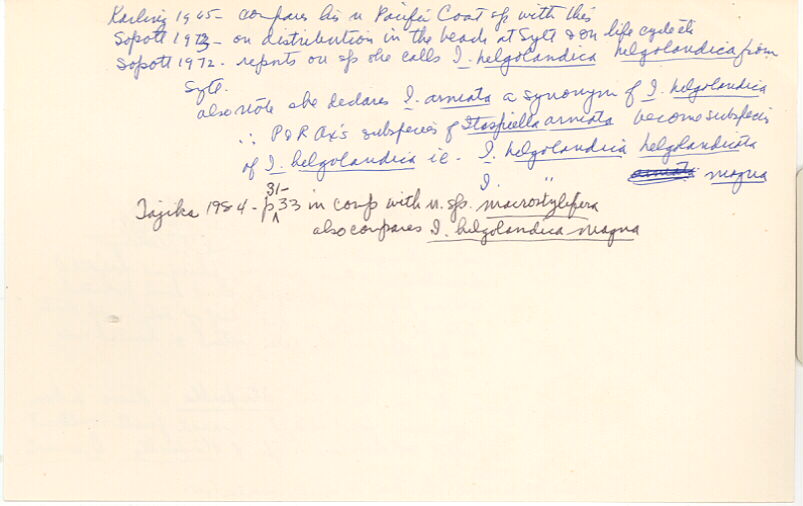 Karling 1965 - compares his n Pacific Coast sp with this
Sopott 1973 - on distribution in the beach at Sylt & on life cycle etc
Sopott 1972 - reports on sp she calls I. helgolandica helgolandica from
Sylt.
also note she declares I. armata a synonym of I. helgolandica
∴ P & R Ax's subspecies of Itaspiella armata become subspecies
of I. helgolandica i.e. I. helgolandica helgolandicata
I. " magna
Tajika 1984 - p 31-33 in comp with n. sp. macrostylifera
also compares I. helgolandica magna